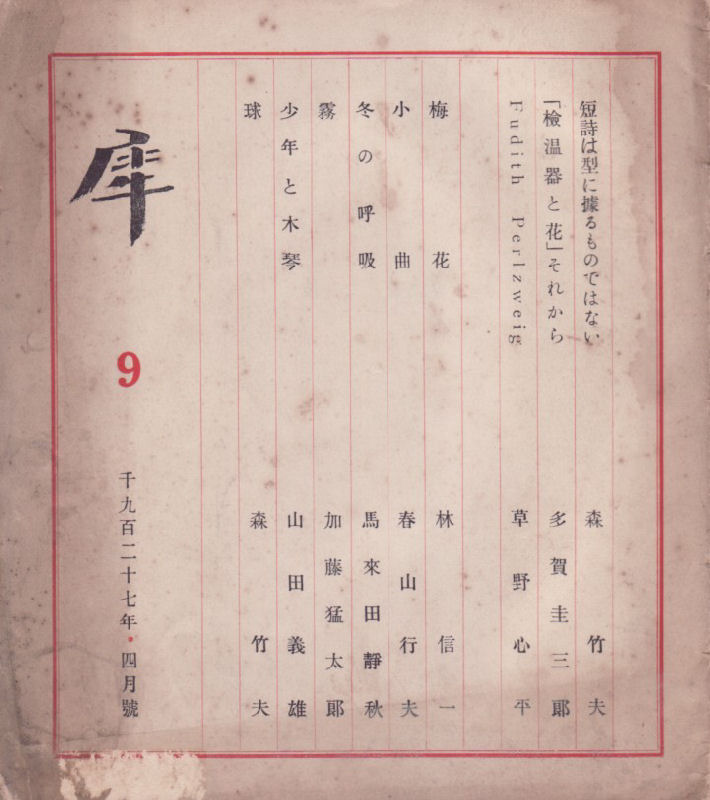 短詩は型に據るものではない 森竹夫
「檢温器と花」それから 多賀圭三郎
Fudith Perlzweig 草野心平
梅花 林信一
小曲 春山行夫
冬の呼吸 馬來田靜秋
霧 加藤猛太郎
少年と木琴 山田義雄
球 森竹夫
犀
9
千九百二十七年・四月號